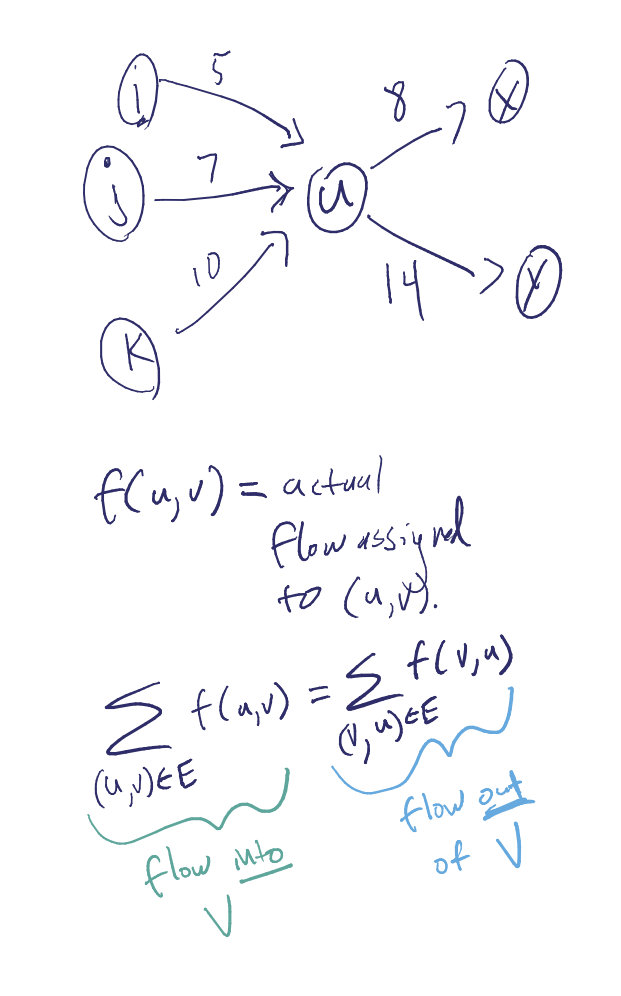 i 5 8 x
j 7 u
10 14 y
k
f(u,v) = actual
flow assigned
to (u,v).
∑ f(u,v) = ∑ f(v,u)
(u,v)∈E (v,u)∈E
flow into
v
flow out
of v